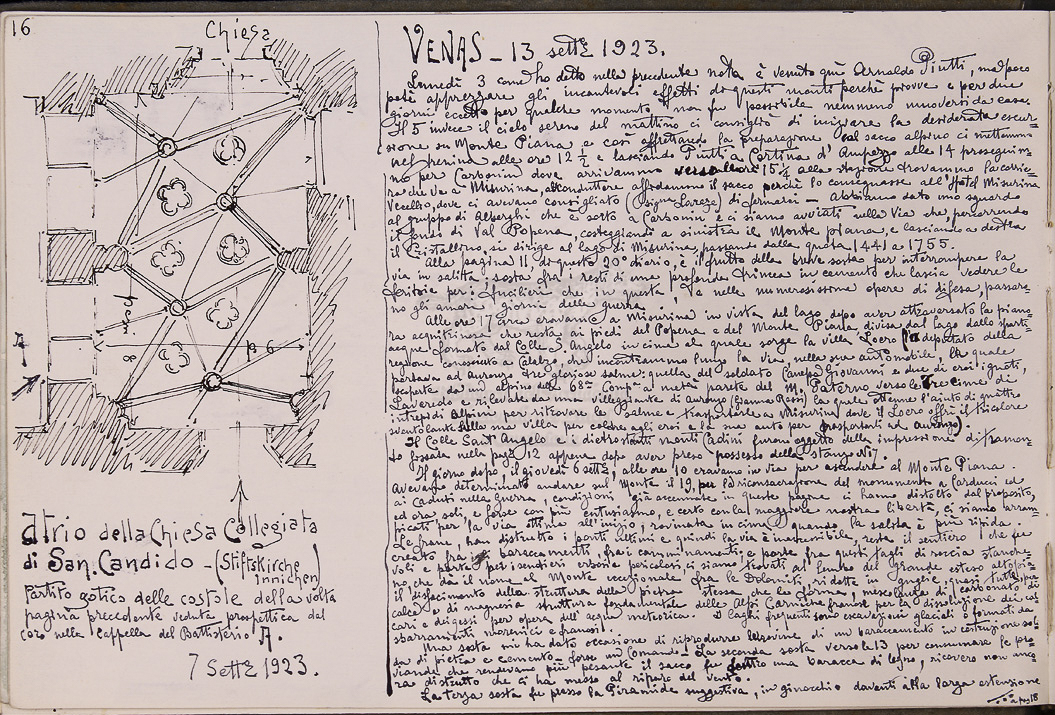 16
Chiesa
atrio della Chiesa Collegiata
di San. Candido - (Stiftskirche
Innichen)
Partito gotico delle costole della volta
pagina precedente veduta prospettica del
coro nella Cappella del Battistero A
7 Sette 1923.
VENAS - 13 sette 1923.
Lunedì 3 come ho detto nella precedente nota è venuto quì Arnaldo Piutti, ma poco
potè apprezzare gli incantevoli effetti di questi monti perchè piovve e per due
giorni eccetto per qualche momento non fu possibile nemmeno muoversi da casa.
Il 5 invece il cielo sereno del mattino ci consigliò di iniziare la desiderata escur-
sione su Monte Piana e così affrettando la preparazione al sacco alpino ci mettemmo
alle ore 12 ½ e lasciando Piutti a Cortina d'Ampezzo alle 14 proseguim-
mo per Carbonin dove arrivammo verso le ore 15 ¼ alla stazione trovammo la corrie-
ra che va a Misurina, al conduttore affidammo il sacco perchè lo consegnasse all'Hotel Misurina
Vecellio, dove ci avevano consigliato di fermarci - Abbiamo dato uno sguardo
al gruppo di Alberghi che è sorto a Carbonin e ci siamo avviati nella Via che, percorrendo
il fondo di Val Popena, costeggiando a sinistra il Monte piana, e lasciando a destra
il Cristallino, si dirige al lago di Misurina, passando dalla quota 1441 a 1755.
Alla pagina 11 di questo 20° diario, è il frutto della breve sosta per interrompere la
via in salita, sosta fra i resti di una profonda trincea in cemento che lascia vedere le
feritoie per i fucilieri che in questa, e nelle numerosissime opere di difesa, passaro-
no gli amari giorni della guerra.
Alle ore 17 circa eravamo a Misurina in vista del lago dopo aver attraversato la pianu-
ra acquitrinosa che resta ai piedi del Popena e del Monte Piana divisa dal lago dallo sparti-
acque formato dal Colle S. Angelo in cima al quale sorge la villa Loero deputato della
regione conosciuto a Calalzo, che incontrammo lungo la via, nella sua automobile, la quale
portava ad Auronzo tre gloriose salme: quella del soldato Canepa Giovanni e due di eroi ignoti,
scoperte da un alpino della 68ª Compª a metà parete del M. Paterno verso le Tre cime di
Lavaredo e rilevate da una villeggiante di Auronzo (Gianna Rossi) la quale ottenne l'aiuto di quattro
intrepidi alpini per ritrovare le Salme e trasportarle a Misurina dove il Loero offrì il tricolore
sventolante sulla sua villa per coprire gli eroi e la sua auto per trasportarli ad Auronzo).
Il Colle Sant'Angelo e i dietrostanti monti Cadini furono oggetto della impressione di tramon-
to fissata nella pag. 12 appena dopo aver preso possesso della stanza N 7.
Il giorno dopo, il giovedì 6 sette, alle ore 10 eravamo in via per ascendere al Monte Piana.
Avevamo determinato andare sul Monte il 19, per la riconsacrazione del monumento a Carducci ed
ai Caduti nella Guerra, condizioni già accennate in queste pagine ci hanno distolto dal proposito,
ed ora soli, e forse con più entusiasmo, e certo con la maggiore nostra libertà, ci siamo arram-
picati per la via ottima all'inizio, rovinata in cima, quando la salita è più ripida.
Le frane, han distrutto i ponti ultimi e quindi la via è inaccessibile, resta il sentiero che fu
creato fra i baraccamenti, fra i camminamenti, e poste fra questi tagli di roccia stanche-
voli e parte per i sentieri erbosi e pericolosi, ci siamo trovati al lembo del grande esteso altopia-
no, che dà il nome al Monte eccezionale fra le Dolomiti, ridotte in guglie, quasi tutte, per
il disfacimento della struttura della pietra stessa, che le forma, mescolanza di carbonato di
calce e di magnesia struttura fondamentale delle Alpi Carniche franose per la dissoluzione dei cal-
cari e dei gessi per opera dell'acqua meteorica. I laghi frequenti sono escavazioni glaciali o formati da
sbarramenti morenici e franosi.
Una sosta mi ha dato occasione di riprodurre le rovine di un baraccamento in costruzione soli-
da di pietra e cemento - forse un Comando - La seconda sosta verso le 13 per consumare le prov-
viande che rendevano più pesante il sacco fu dietro una baracca di legno, ricovero non anco-
ra distrutto che ci ha messo al riparo del vento.
La terza sosta fu presso la Piramide suggestiva, in ginocchio davanti alla larga estensione
a pag 18